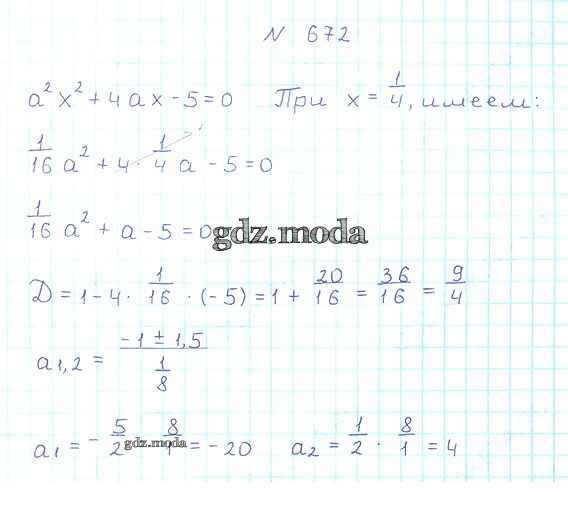 N 672
a² x² + 4 a x - 5 = 0 При x = 1/4, имеем:
1/16 a² + 4 · 1/4 a - 5 = 0
1/16 a² + a - 5 = 0
gdz.moda
D = 1 - 4 · 1/16 · (-5) = 1 + 20/16 = 36/16 = 9/4
a1,2 = (-1 ± 1,5)/(1/8)
a1 = - 5/2 8/1 = - 20 a2 = 1/2 · 8/1 = 4
gdz.moda